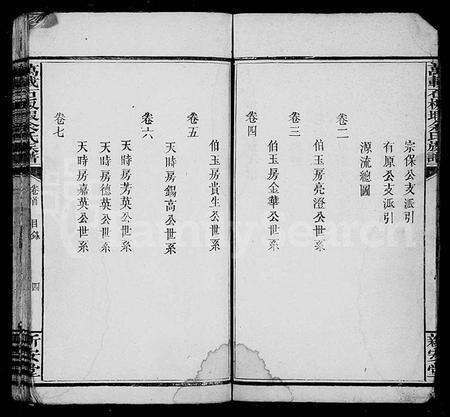 宗保公支派引
有原公支派引
源流總圖
卷二
伯玉房亮澄公世系
卷三
伯玉房金華公世系
卷四
伯玉房貴生公世系
卷五
天時房錫高公世系
卷六
天時房芳英公世系
天時房德英公世系
天時房嘉英公世系
卷七
卷首 目錄 四
新安堂
新安堂
FamilySearch